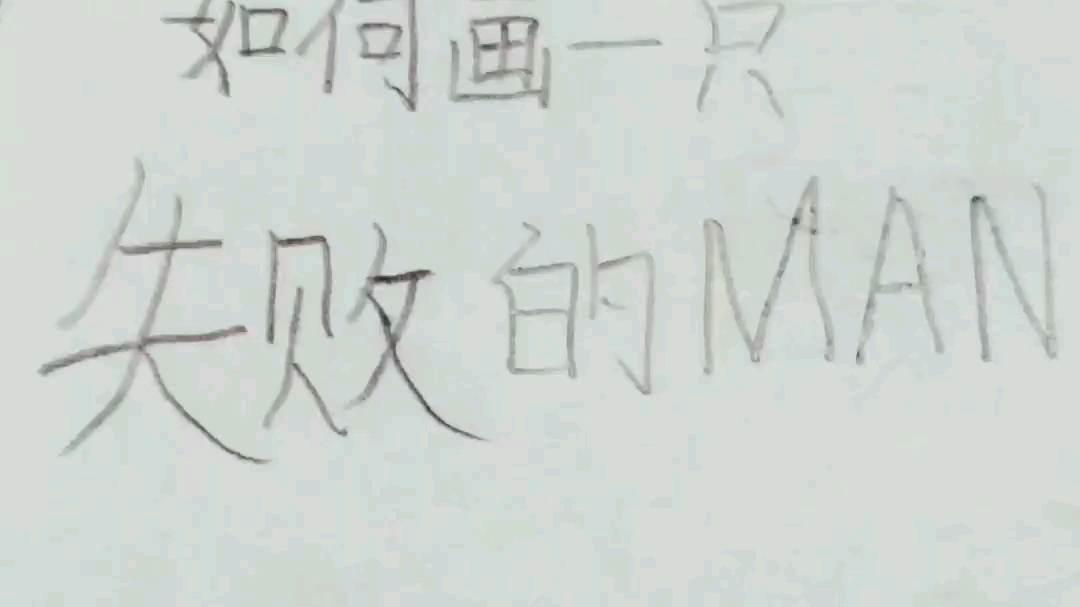 如何画一只
失败的MAN